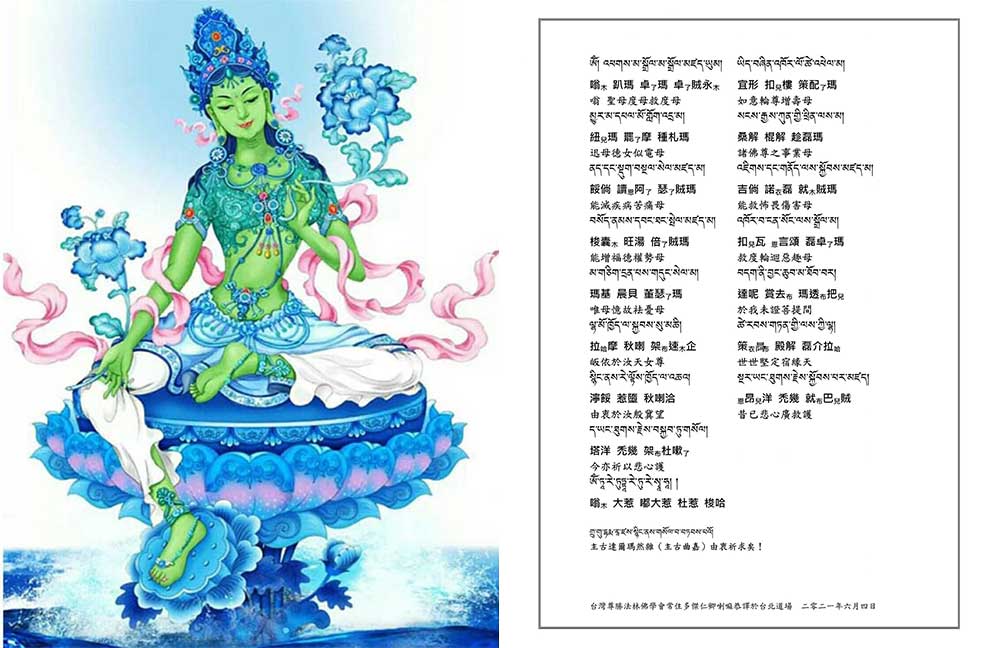 ༀ། འཕགས་མ་སྒྲོལ་མ་སྒྲོལ་མཛད་ཡུམ། ཡིད་བཞིན་འཁོར་ལོ་ཚེ་འཕེལ་མ།
嗡木 趴瑪 卓了瑪 卓了賊永木 宜形 扣兒樓 策配了瑪
嗡 聖母度母救度母 如意輪尊增壽母
མྱུར་མ་དཔལ་མོ་གློག་འདྲ་མ། སངས་རྒྱས་ཀུན་གྱི་ཕྲིན་ལས་མ།
紐兒瑪 罷了摩 種札瑪 桑解 棍解 趁磊瑪
迅母德女似電母 諸佛尊之事業母
ནད་དང་སྡུག་བསྔལ་སེལ་མཛད་མ། འཇིགས་དང་གནོད་ལས་སྐྱོབས་མཛད་མ།
餒倘 讀恩阿了 瑟了賊瑪 吉倘 諾衣磊 就木賊瑪
能滅疾病苦痛母 能救怖畏傷害母
བསོད་ནམས་དབང་ཐང་སྤེལ་མཛད་མ། འཁོར་བ་ངན་སོང་ལས་སྒྲོལ་མ།
梭囊木 旺湯 倍了賊瑪 扣兒瓦 恩言頌 磊卓了瑪
能增福德權勢母 救度輪迴惡趣母
མ་གཅིག་དྲན་པས་གདུང་སེལ་མ། བདག་ནི་བྱང་ཆུབ་མ་ཐོབ་བར།
瑪基 晨貝 董瑟了瑪 達呢 賞去布 瑪透布把兒
唯母憶故祛憂母 於我未證菩提間
ལྷ་མོ་ཁྱོད་ལ་སྐྱབས་སུ་མཆི། ཚེ་རབས་གཏན་གྱི་ལས་ཀྱི་ལྷ།
拉哈摩 秋喇 架布速木企 策衣局布 殿解 磊介拉哈
皈依於汝天女尊 世世堅定宿緣天
སྙིང་ནས་རེ་ལྟོས་ཁྱོད་ལ་འཆལ། སྔར་ཡང་ཐུགས་རྗེས་སྐྱོབས་པར་མཛད།
濘餒 惹墮 秋喇洽 恩昂兒洋 禿幾 就布巴兒賊
由衷於汝殷冀望 昔已悲心廣救護
ད་ཡང་ཐུགས་རྗེས་བསྐྱབ་ཏུ་གསོལ།
塔洋 禿幾 架布杜嗽了
今亦祈以悲心護
ༀ་ཏཱ་རེ་ཏུཏྟཱ་རེ་ཏུ་རེ་སྭཱ་ཧཱ། །
嗡木 大惹 嘟大惹 杜惹 梭哈
གྲུ་གུ་དྷརྨ་རཏྣས་སྙིང་ནས་གསོལ་བ་བཏབས་པའོ།
主古達爾瑪然雜（主古曲嘉）由衷祈求矣！
台灣尊勝法林佛學會常住多傑仁卿喇嘛恭譯於台北道場 二零二一年六月四日